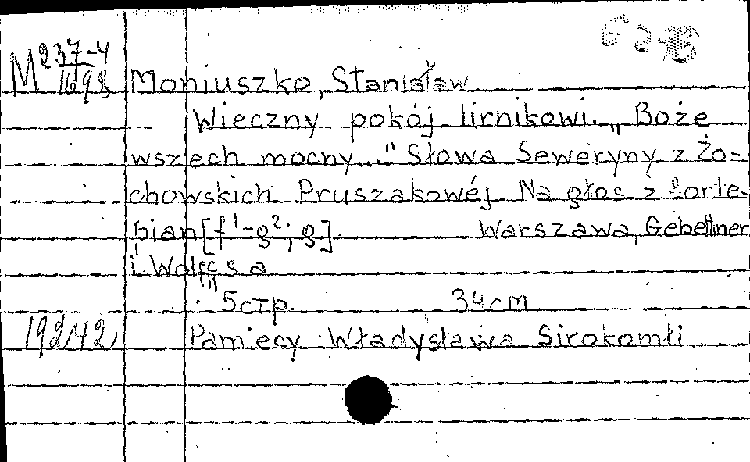 M 237-4
1698
Moniuszko, Stanisław
Wieczny pokój lirnikowi. „Boże
wszech mocny..." Słowa Seweryny z Żo-
chowskich Pruszakowéj. Na głos z forte-
pian [f¹-g²; g.] Warszawa, Gebethner
i Wolf
5стр. 34cm
19242 Pamięcy Władysława Sirokomli